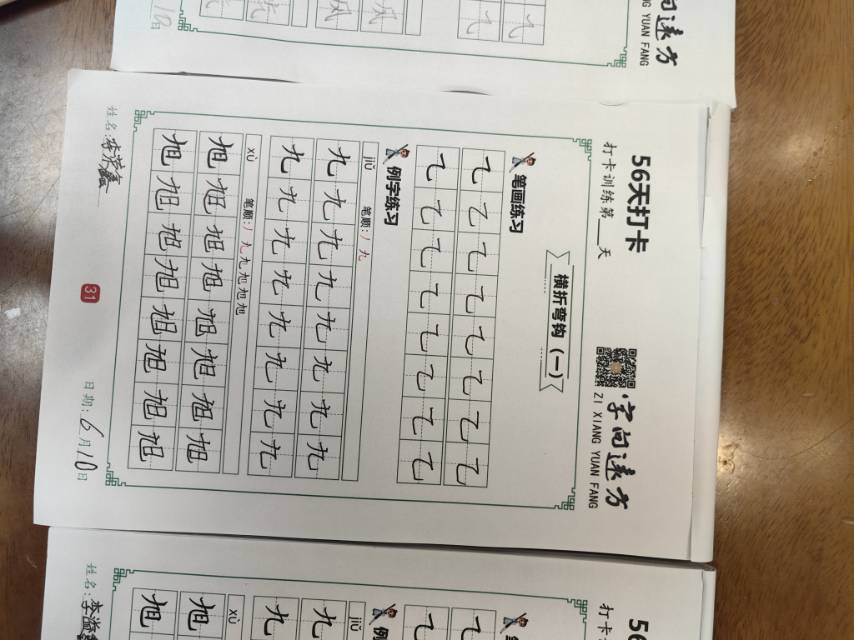 56天打卡
字向远方
打卡训练第___天
ZI XIANG YUAN FANG
横折弯钩(一)
笔画练习
乁乁乁乁乁乁乁乁
乁乁乁乁乁乁乁乁
例字练习
jiǔ 笔顺:丿九
九九九九九九九九
九九九九九九九九
xù 笔顺:丿九九旭旭旭
旭旭旭旭旭旭旭旭
旭旭旭旭旭旭旭旭
姓名:
31
日期:6月10日
向远方
YUAN FANG
九九
10日
56
打卡
例
jiǔ
九九
九九
xù
旭旭
旭旭
姓名:李